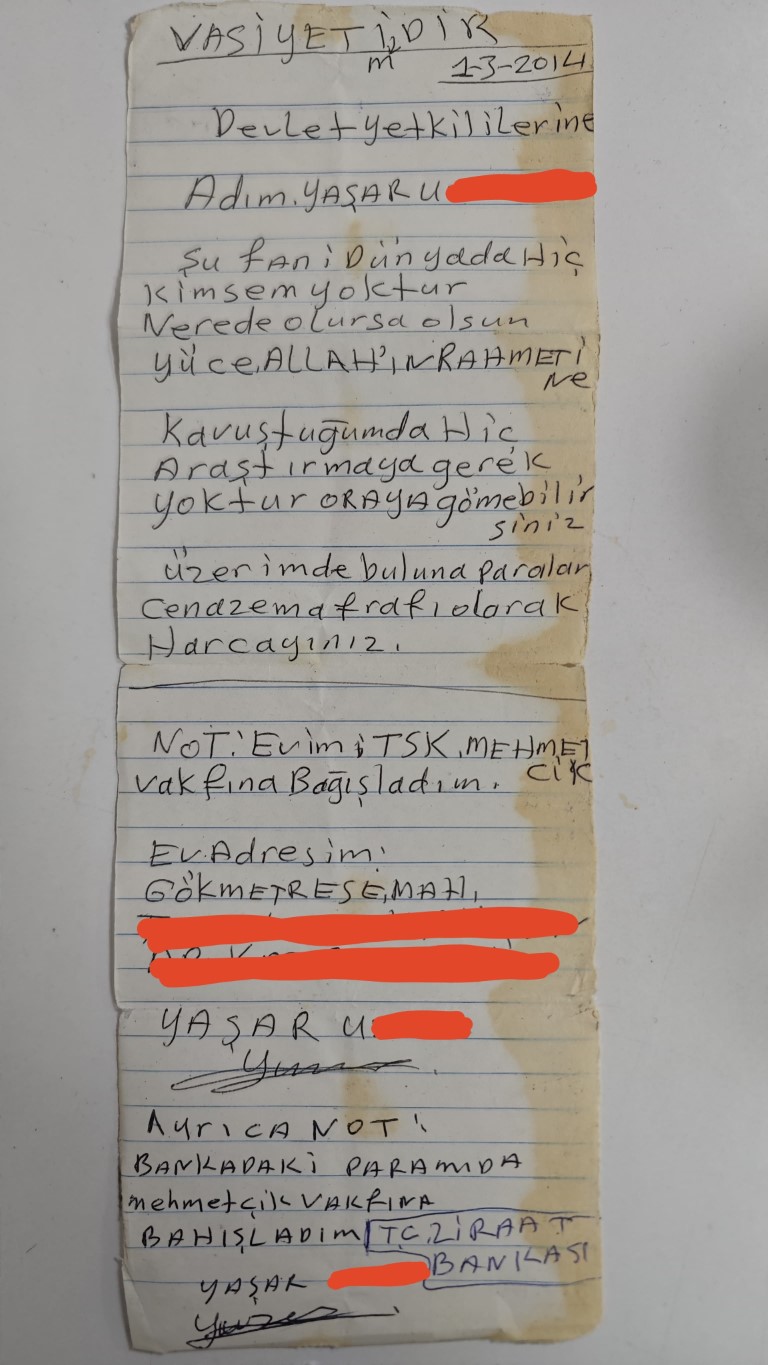 VASİYETİMDİR
1-3-2014
Devlet yetkililerine
Adım. YAŞAR U
Şu fani Dünyada Hiç
Kimsem yoktur
Nerede olursa olsun
Yüce, ALLAH'IN RAHMETİ
NE
Kavuştuğumda Hiç
Araştırmaya gerek
yoktur ORAYA gömebilir
siniz
üzerimde buluna paralar
Cenazemafrafı olarak
Harcayınız.
NOT: Evimi TSK. MEHMET
CİK
Vakfına Bağışladım.
Ev. Adresim:
GÖKMETRESE, MAH,
YAŞAR U
AyrıCA NOT:
BANKADAKİ PARAMIDA
mehmetçik VAKFINA
BAHIŞLADIM T.C. ZİRAAT
BANKASI
YAŞAR